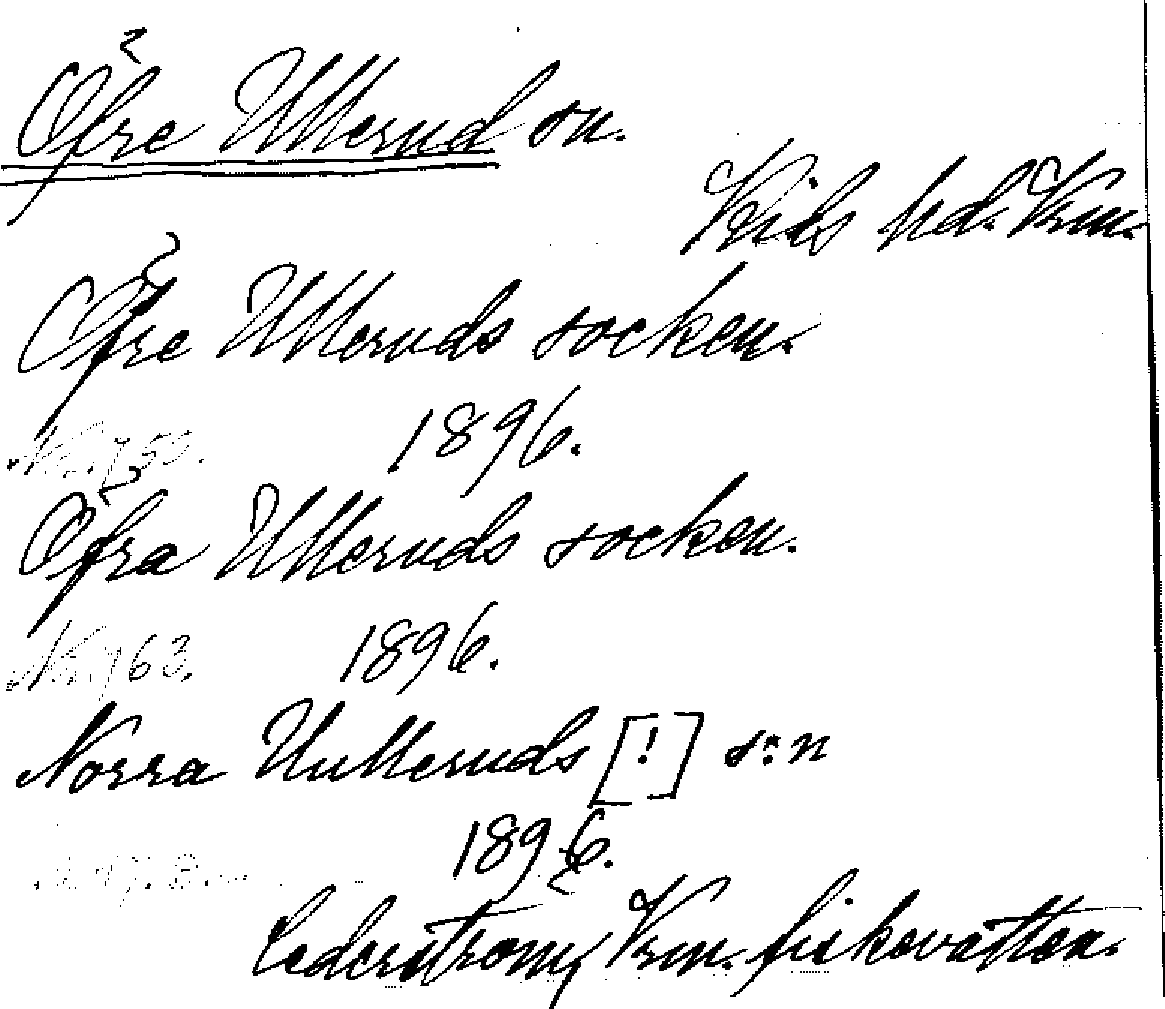 Öfre Ullerud sn.
Kils hd. Vrm.
Öfre Ulleruds socken.
1896.
Öfra Ulleruds socken.
763. 1896.
Norra Uulleruds [!] s:n
1896.
Cederström, Vrm. fiskevatten.